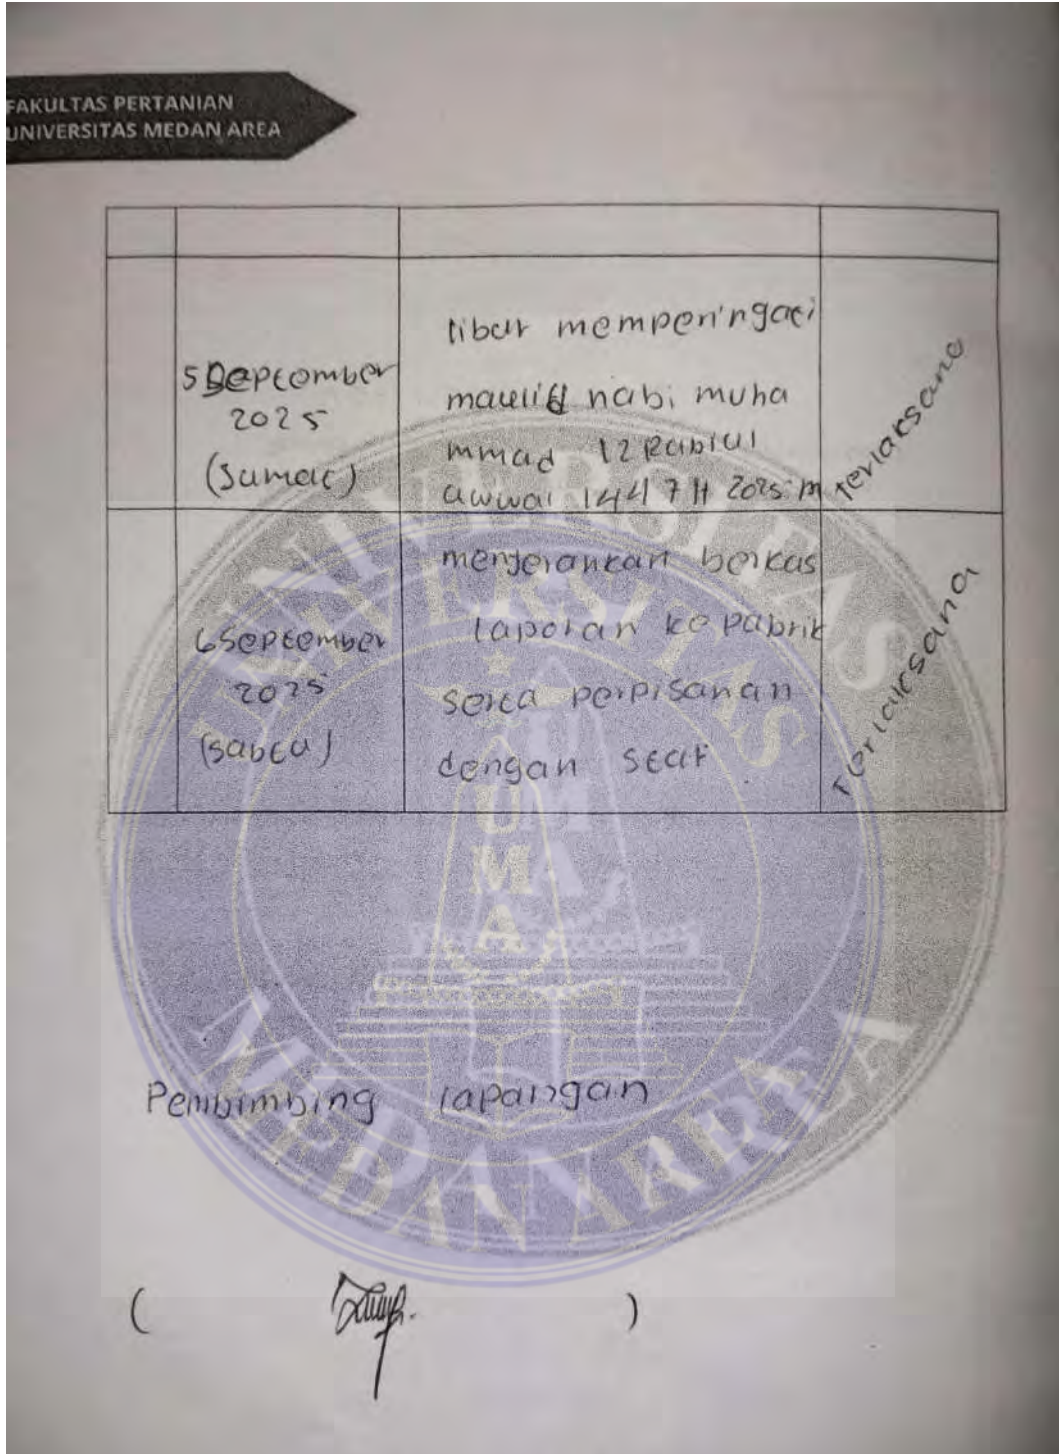 FAKULTAS PERTANIAN
UNIVERSITAS MEDAN AREA
5 September
2025
(Jumat)
libur memperingati
maulid nabi muha
mmad 12 Rabiul
awwal 1447 H 2025 M
terlaksana
6 September
2025
(sabtu)
menyerahkan berkas
laporan ke pabrik
serta perpisahan
dengan staf
Terlaksana
UNIVERSITAS
MEDAN AREA
UMA
Pembimbing lapangan
( )